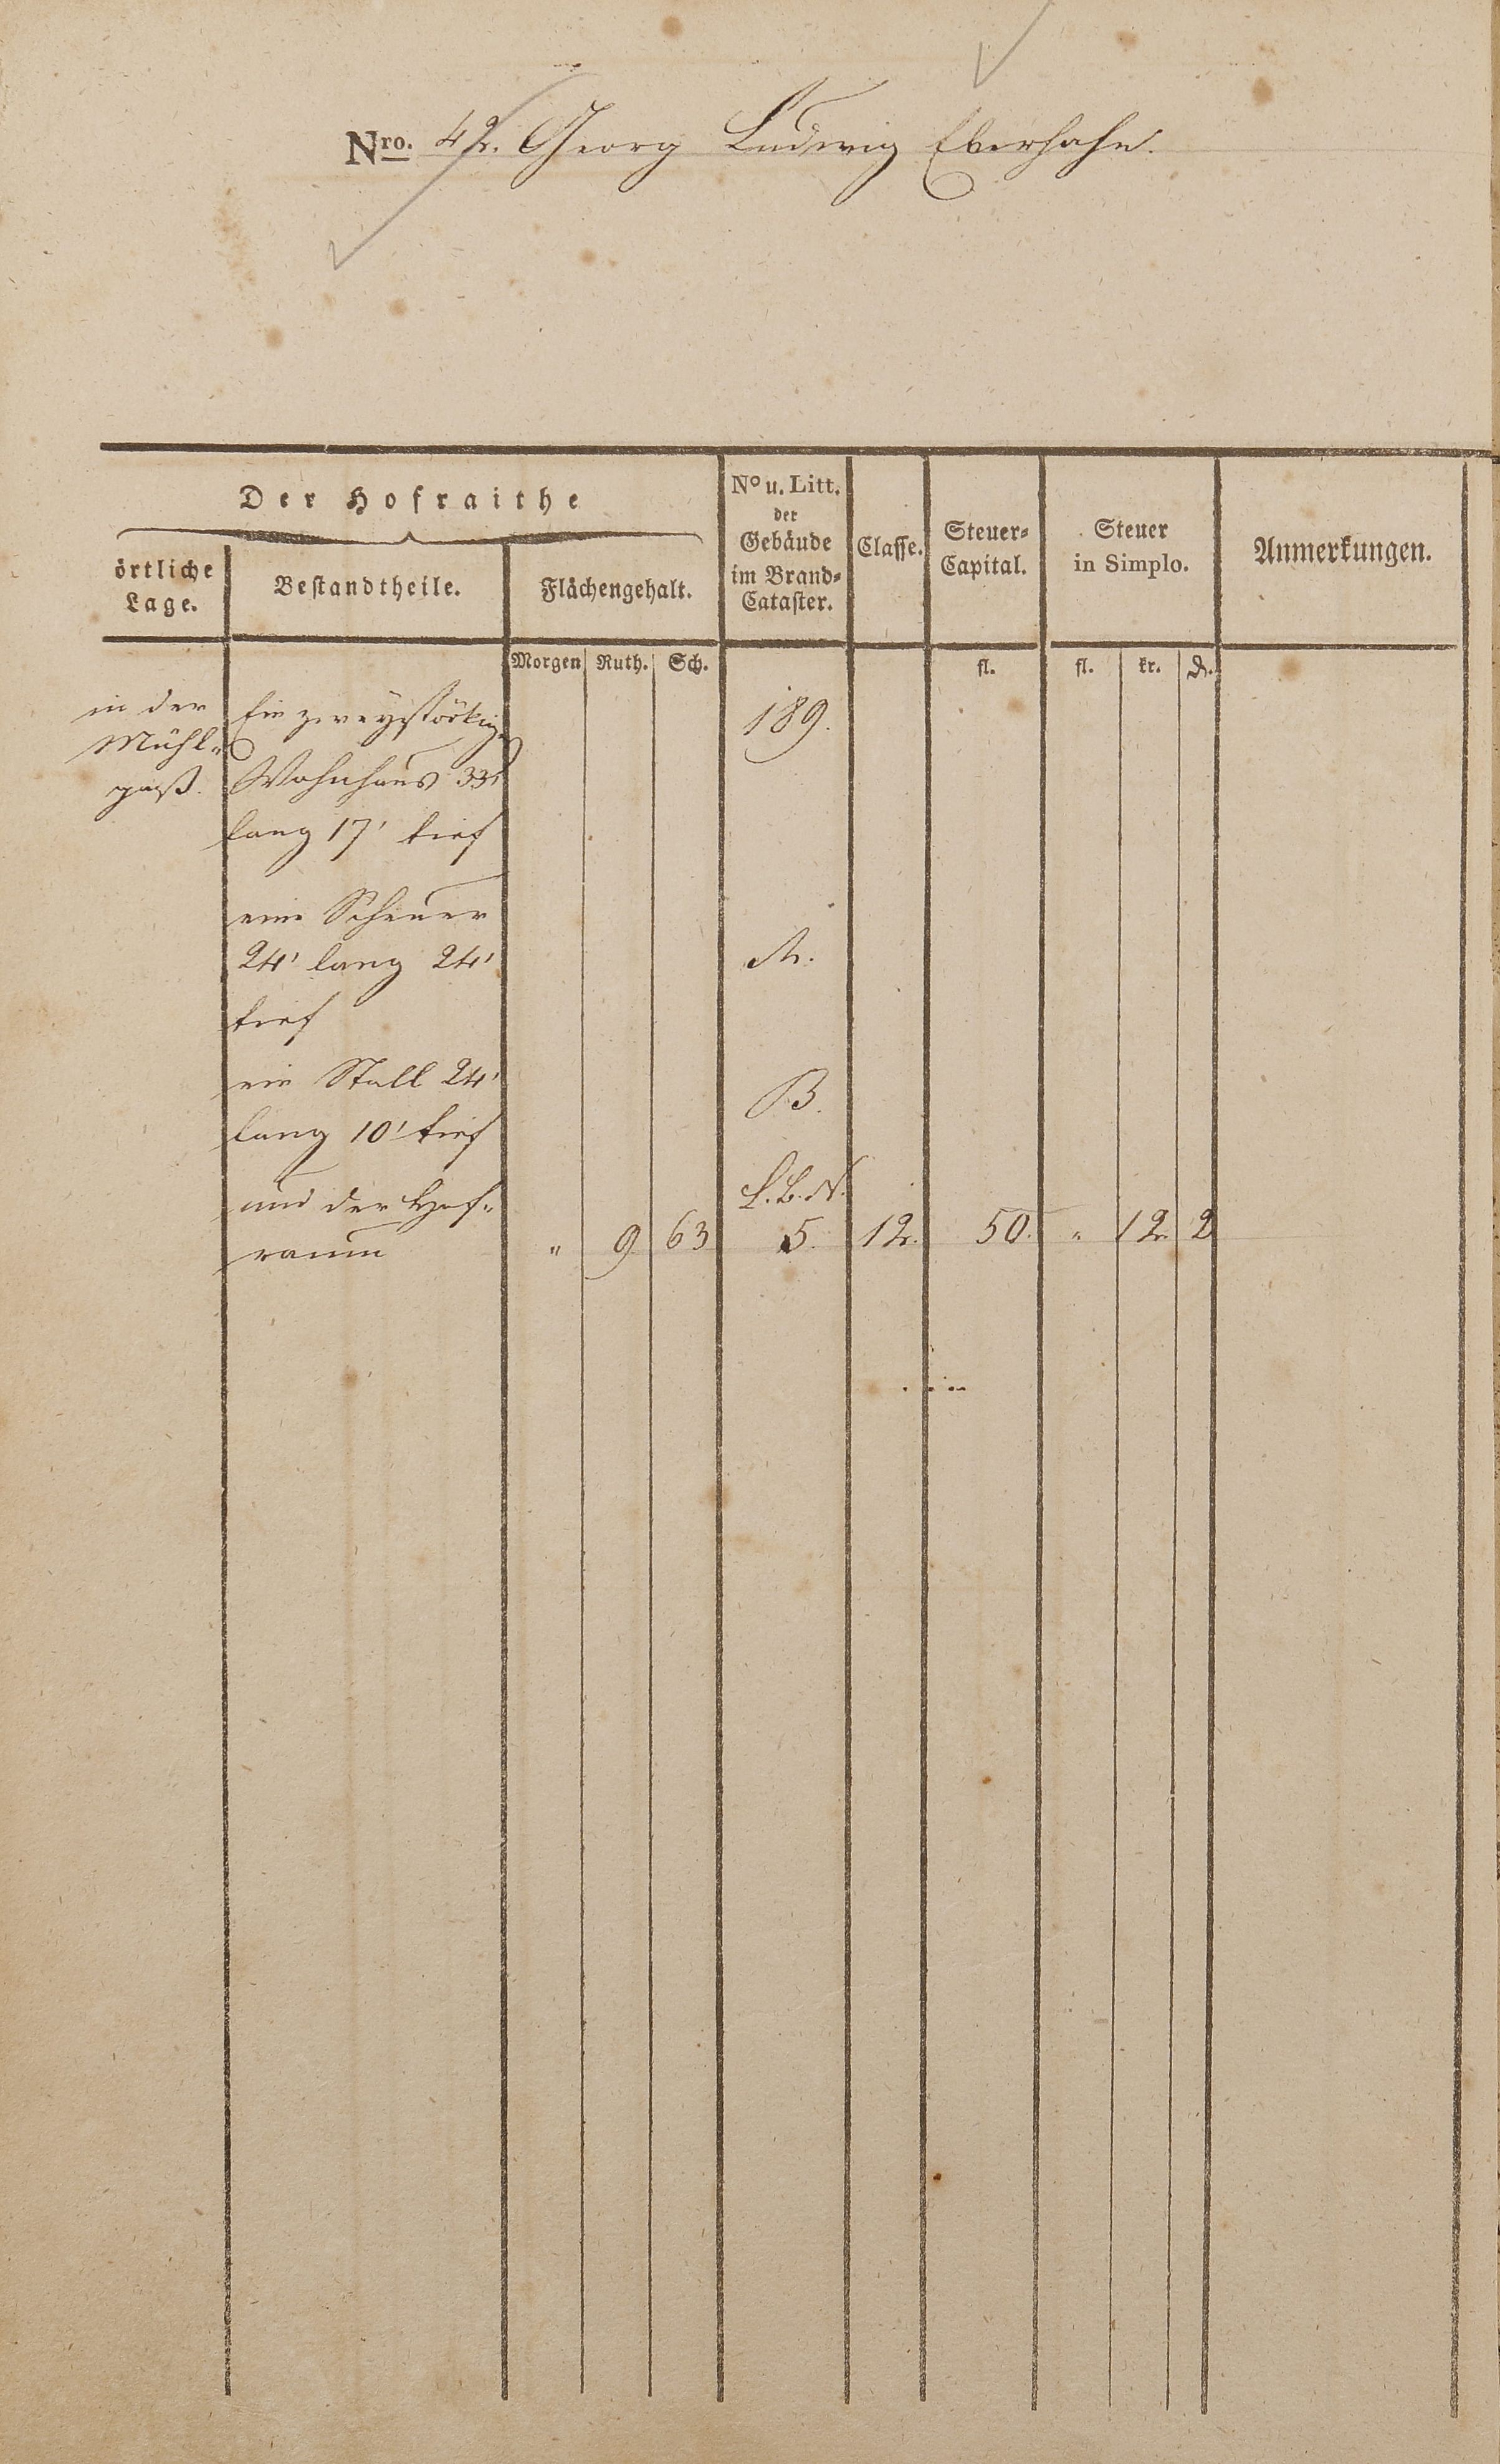 Nro. 42. Georg Ludwig Eberhahn.
Der Hofraithe
örtliche
Lage.
Bestandtheile.
Flächengehalt.
No u. Litt.
der
Gebäude
im Brand-
Cataster.
Classe.
Steuer-
Capital.
Steuer
in Simplo.
Anmerkungen.
Morgen Ruth. Sch. fl. fl. kr. d.
in der
Mühl-
gaß.
Ein zweystöckig.
Wohnhaus 33'
lang 17' tief
189.
eine Scheuer
24' lang 24'
tief
A.
ein Stall 24'
lang 10' tief
B.
und der Hof-
raum
L.B.N.
" 9 63 5. 12. 50. " 12 2